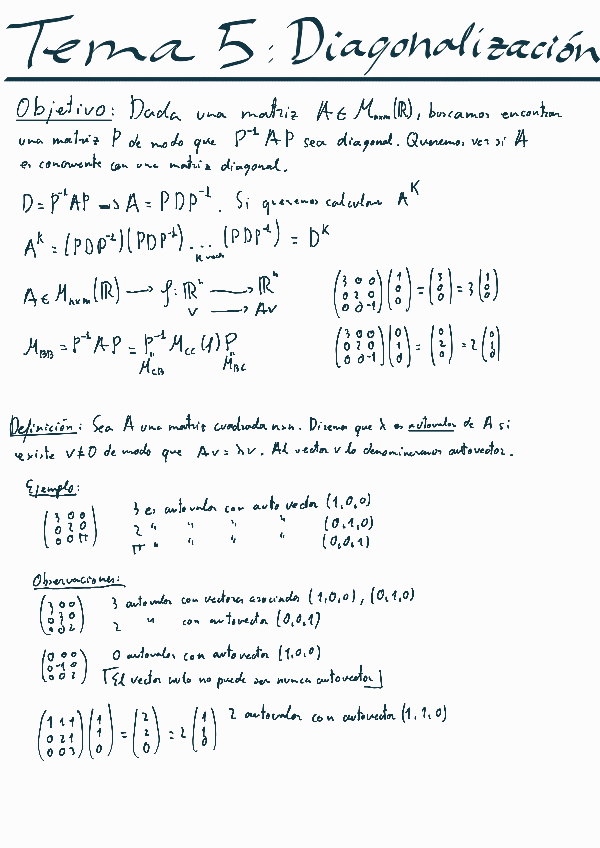 Tema 5: Diagonalización
Objetivo: Dada una matriz A ∈ Mₙₓₙ(ℝ), buscamos encontrar
una matriz P de modo que P⁻¹AP sea diagonal. Queremos ver si A
es congruente con una matriz diagonal.
D = P⁻¹AP → A = PDP⁻¹. Si queremos calcular Aᴷ
Aᴷ = (PDP⁻¹)(PDP⁻¹) ... (PDP⁻¹) = Dᴷ
K veces
A ∈ Mₙₓₙ(ℝ) → f: ℝⁿ → ℝⁿ
v → Av
(3 0 0; 0 2 0; 0 0 -1)(1; 0; 0) = (3; 0; 0) = 3(1; 0; 0)
M_BB = P⁻¹AP = P⁻¹ M_CC(f) P
M_CB M_BC
(3 0 0; 0 2 0; 0 0 -1)(0; 1; 0) = (0; 2; 0) = 2(0; 1; 0)
Definición: Sea A una matriz cuadrada nxn. Diremos que λ es autovalor de A si
existe v≠0 de modo que Av = λv. Al vector v lo denominaremos autovector.
Ejemplo:
(3 0 0; 0 2 0; 0 0 π)
3 es autovalor con autovector (1,0,0)
2 " " " " (0,1,0)
π " " " " (0,0,1)
Observaciones:
(3 0 0; 0 3 0; 0 0 2)
3 autovalor con vectores asociados (1,0,0), (0,1,0)
2 " con autovector (0,0,1)
(0 0 0; 0 -1 0; 0 0 2)
0 autovalor con autovector (1,0,0)
[El vector nulo no puede ser nunca autovector]
(1 1 1; 0 2 1; 0 0 3)(1; 1; 0) = (2; 2; 0) = 2(1; 1; 0) 2 autovalor con autovector (1,1,0)